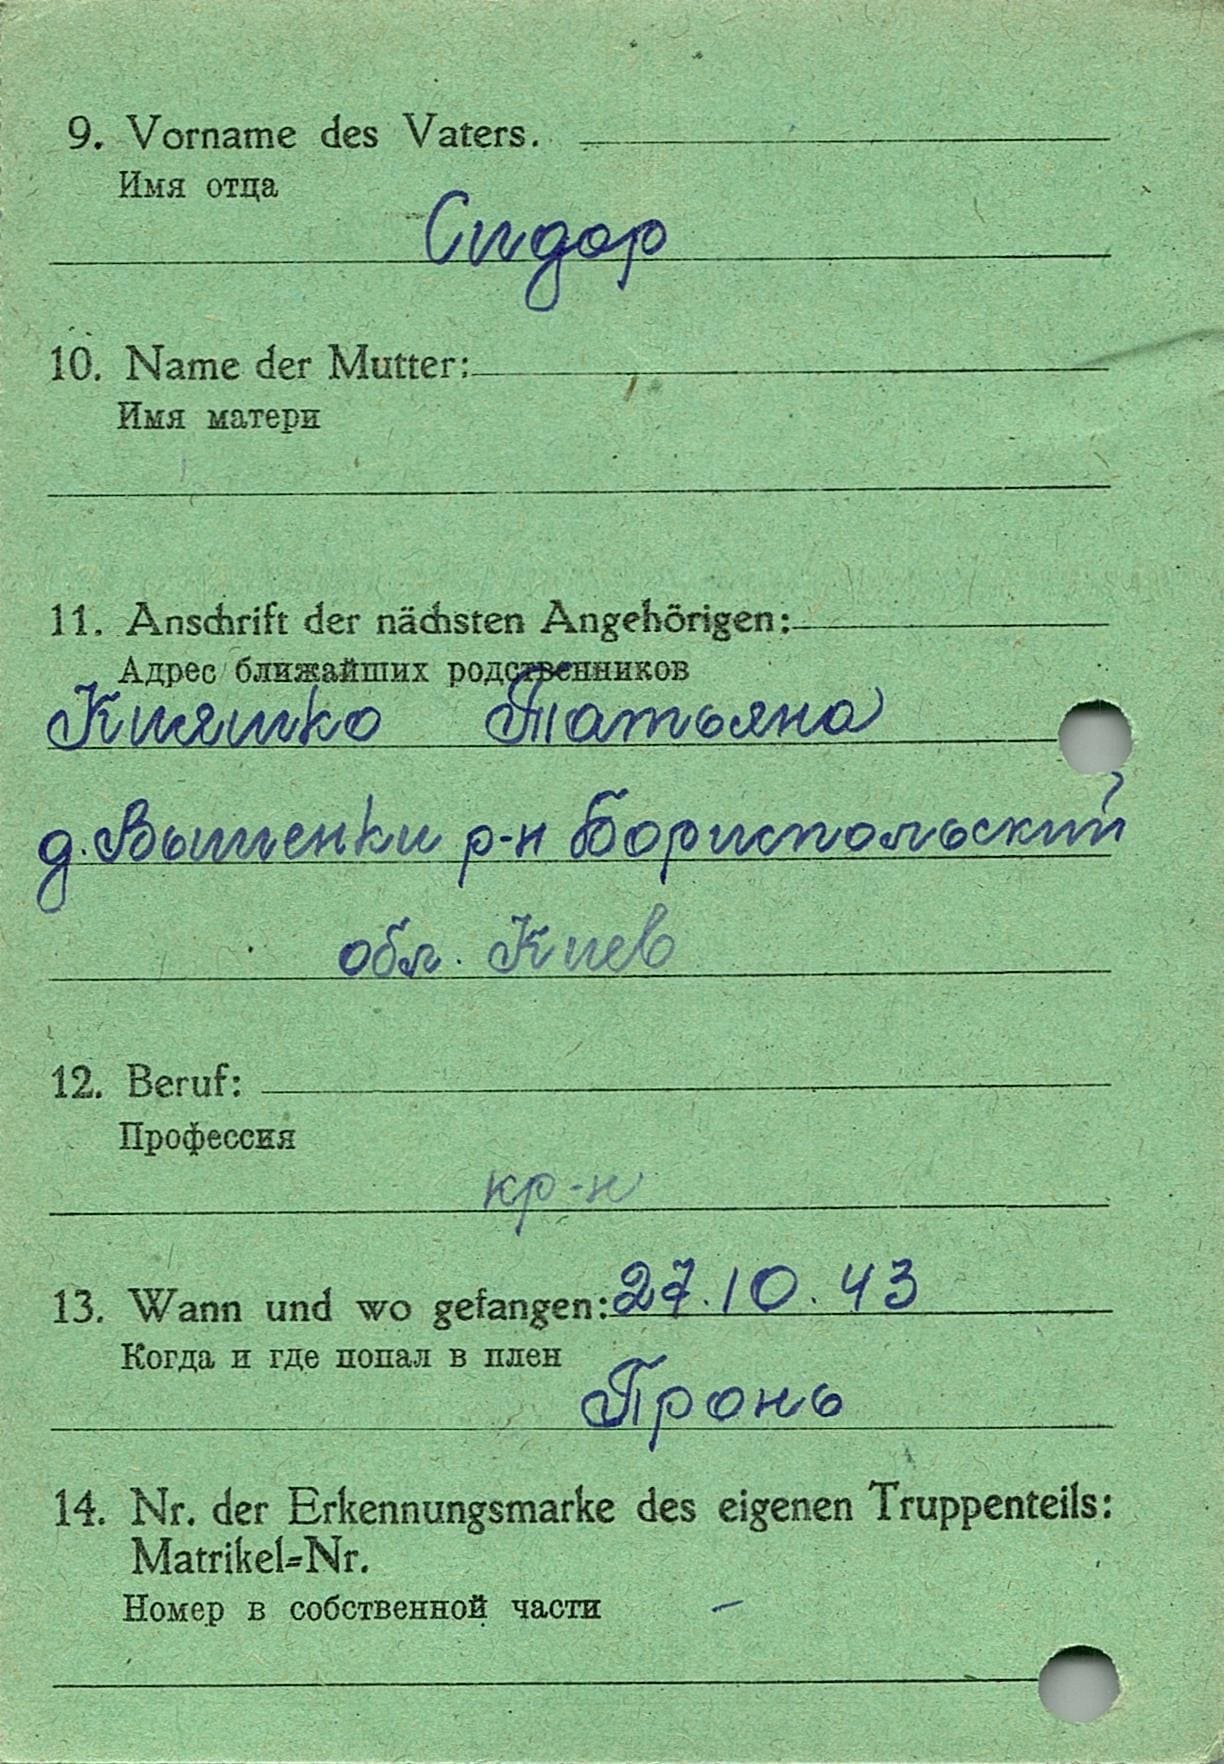 9. Vorname des Vaters.
Имя отца
Сидор
10. Name der Mutter:
Имя матери
11. Anschrift der nächsten Angehörigen:
Адрес ближайших родственников
Кияшко Татьяна
д. Вышенки р-н Бориспольский
обл. Киев
12. Beruf:
Профессия
кр-н
13. Wann und wo gefangen: 27.10.43
Когда и где попал в плен
Пронь
14. Nr. der Erkennungsmarke des eigenen Truppenteils:
Matrikel-Nr.
Номер в собственной части –